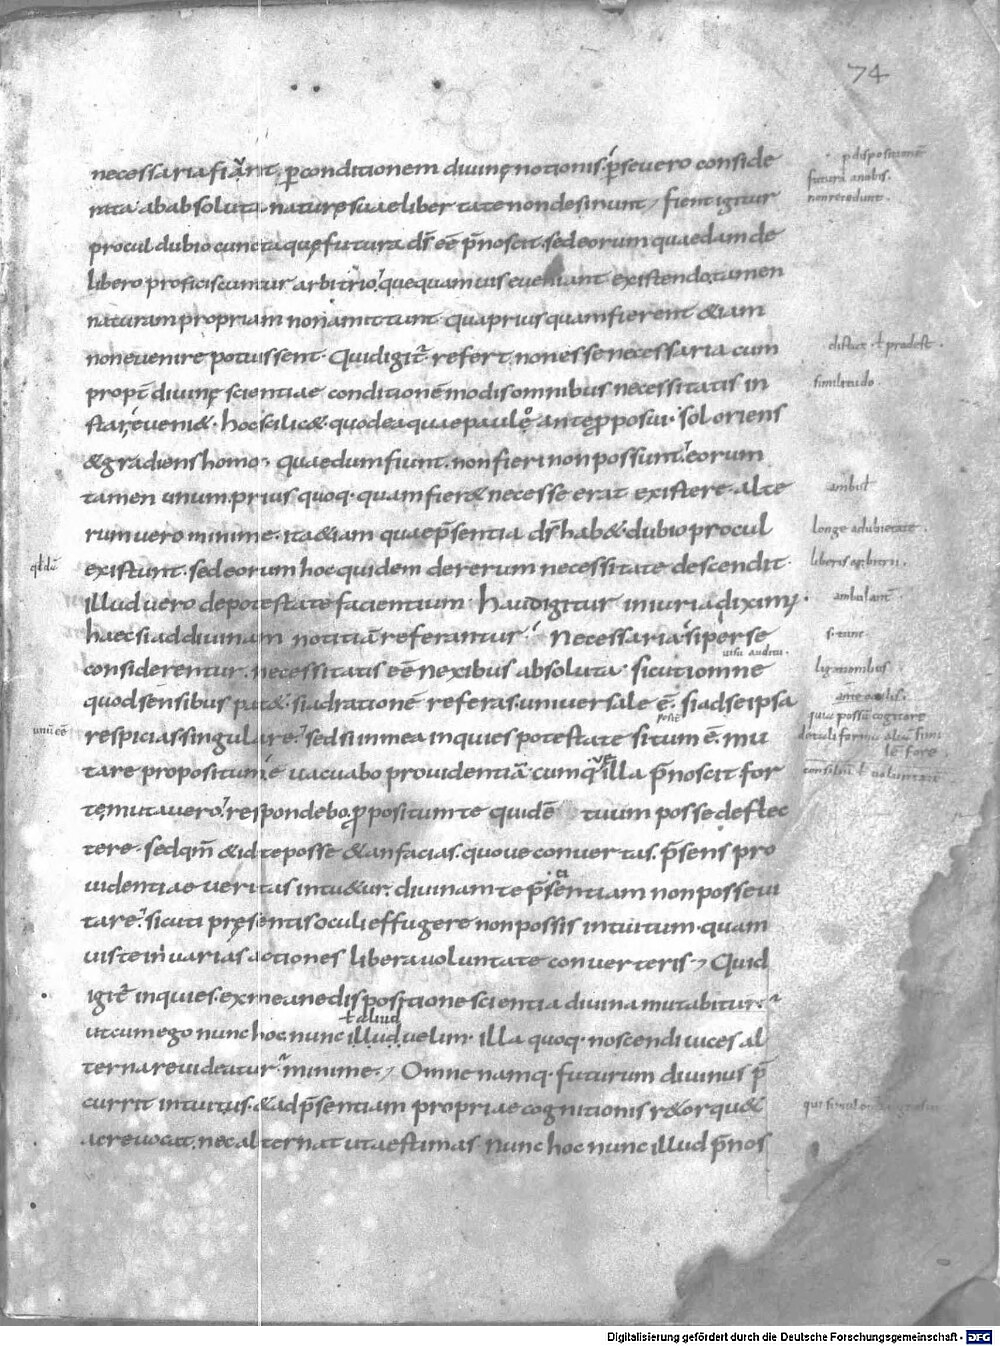 74
necessaria fiant, p conditionem diuinę notionis; p se uero conside
rata ab absoluta naturę suae libertate non desinunt; fient igitur
procul dubio cuncta quę futura ds eē p̄noscit sed eorum quaedam de
libero proficiscuntur arbitrio; que quamuis eueniant existendo tamen
naturam propriam non amittunt. qua prius quam fierent &iam
non euenire potuissent. Quid igit̄ refert non esse necessaria cum
propt̄ diuinę scientiae conditionē modis omnibus necessitatis in
star eueni&. hoc scilic& quod ea quae paulo ante pposui. sol oriens
& gradiens homo. quae dum fiunt. non fieri non possunt. eorum
tamen unum prius quoq. quam fier& necesse erat existere. alte
rum uero minime. ita &iam quae p̄sentia ds hab& dubio procul
existunt. sed eorum hoc quidem de rerum necessitate descendit.
illud uero de potestate facientium. haud igitur iniuria diximus.
haec si ad diuinam notitiā referantur. necessaria. si per se
considerentur. necessitatis eē nexibus absoluta. sicuti omne
quod sensibus pat&. si ad rationē referas. uniuersale ē. si ad se ipsa
respicias. singulare. sed si in mea inquies potestate situm ē. mu
tare propositum. euacuabo prouidentiā. cum quae illa p̄noscit for
te mutauero. respondebo. ppositum te quidē tuum posse deflec
tere. sed qm̄ & id te posse & an facias. quoue conuertas. p̄sens pro
uidentiae ueritas intu&ur. diuinam te p̄scientiam non posse ui
tare. sicuti pręsentis oculi effugere non possis intuitum. quam
uis te in uarias actiones libera uoluntate conuerteris. Quid
igit̄ inquies. ex mea ne dispositione scientia diuina mutabitur.
ł aliud
ut cum ego nunc hoc nunc illud uelim. illa quoq. noscendi uices al
ternare uideatur. minime. Omne namq. futurum diuinus p̄
currit intuitus. & ad p̄sentiam propriae cognitionis r&orqu&
ac reuocat. nec alternat ut aestimas. nunc hoc nunc illud p̄nos
p dispositionē
futura a nobis.
non recedunt.
distare. ł prodest.
similitudo.
longe a dubietate.
liberi arbitrii.
ambulant̄.
ante oculis.
quia possū cogitare
Digitalisierung gefördert durch die Deutsche Forschungsgemeinschaft - DFG